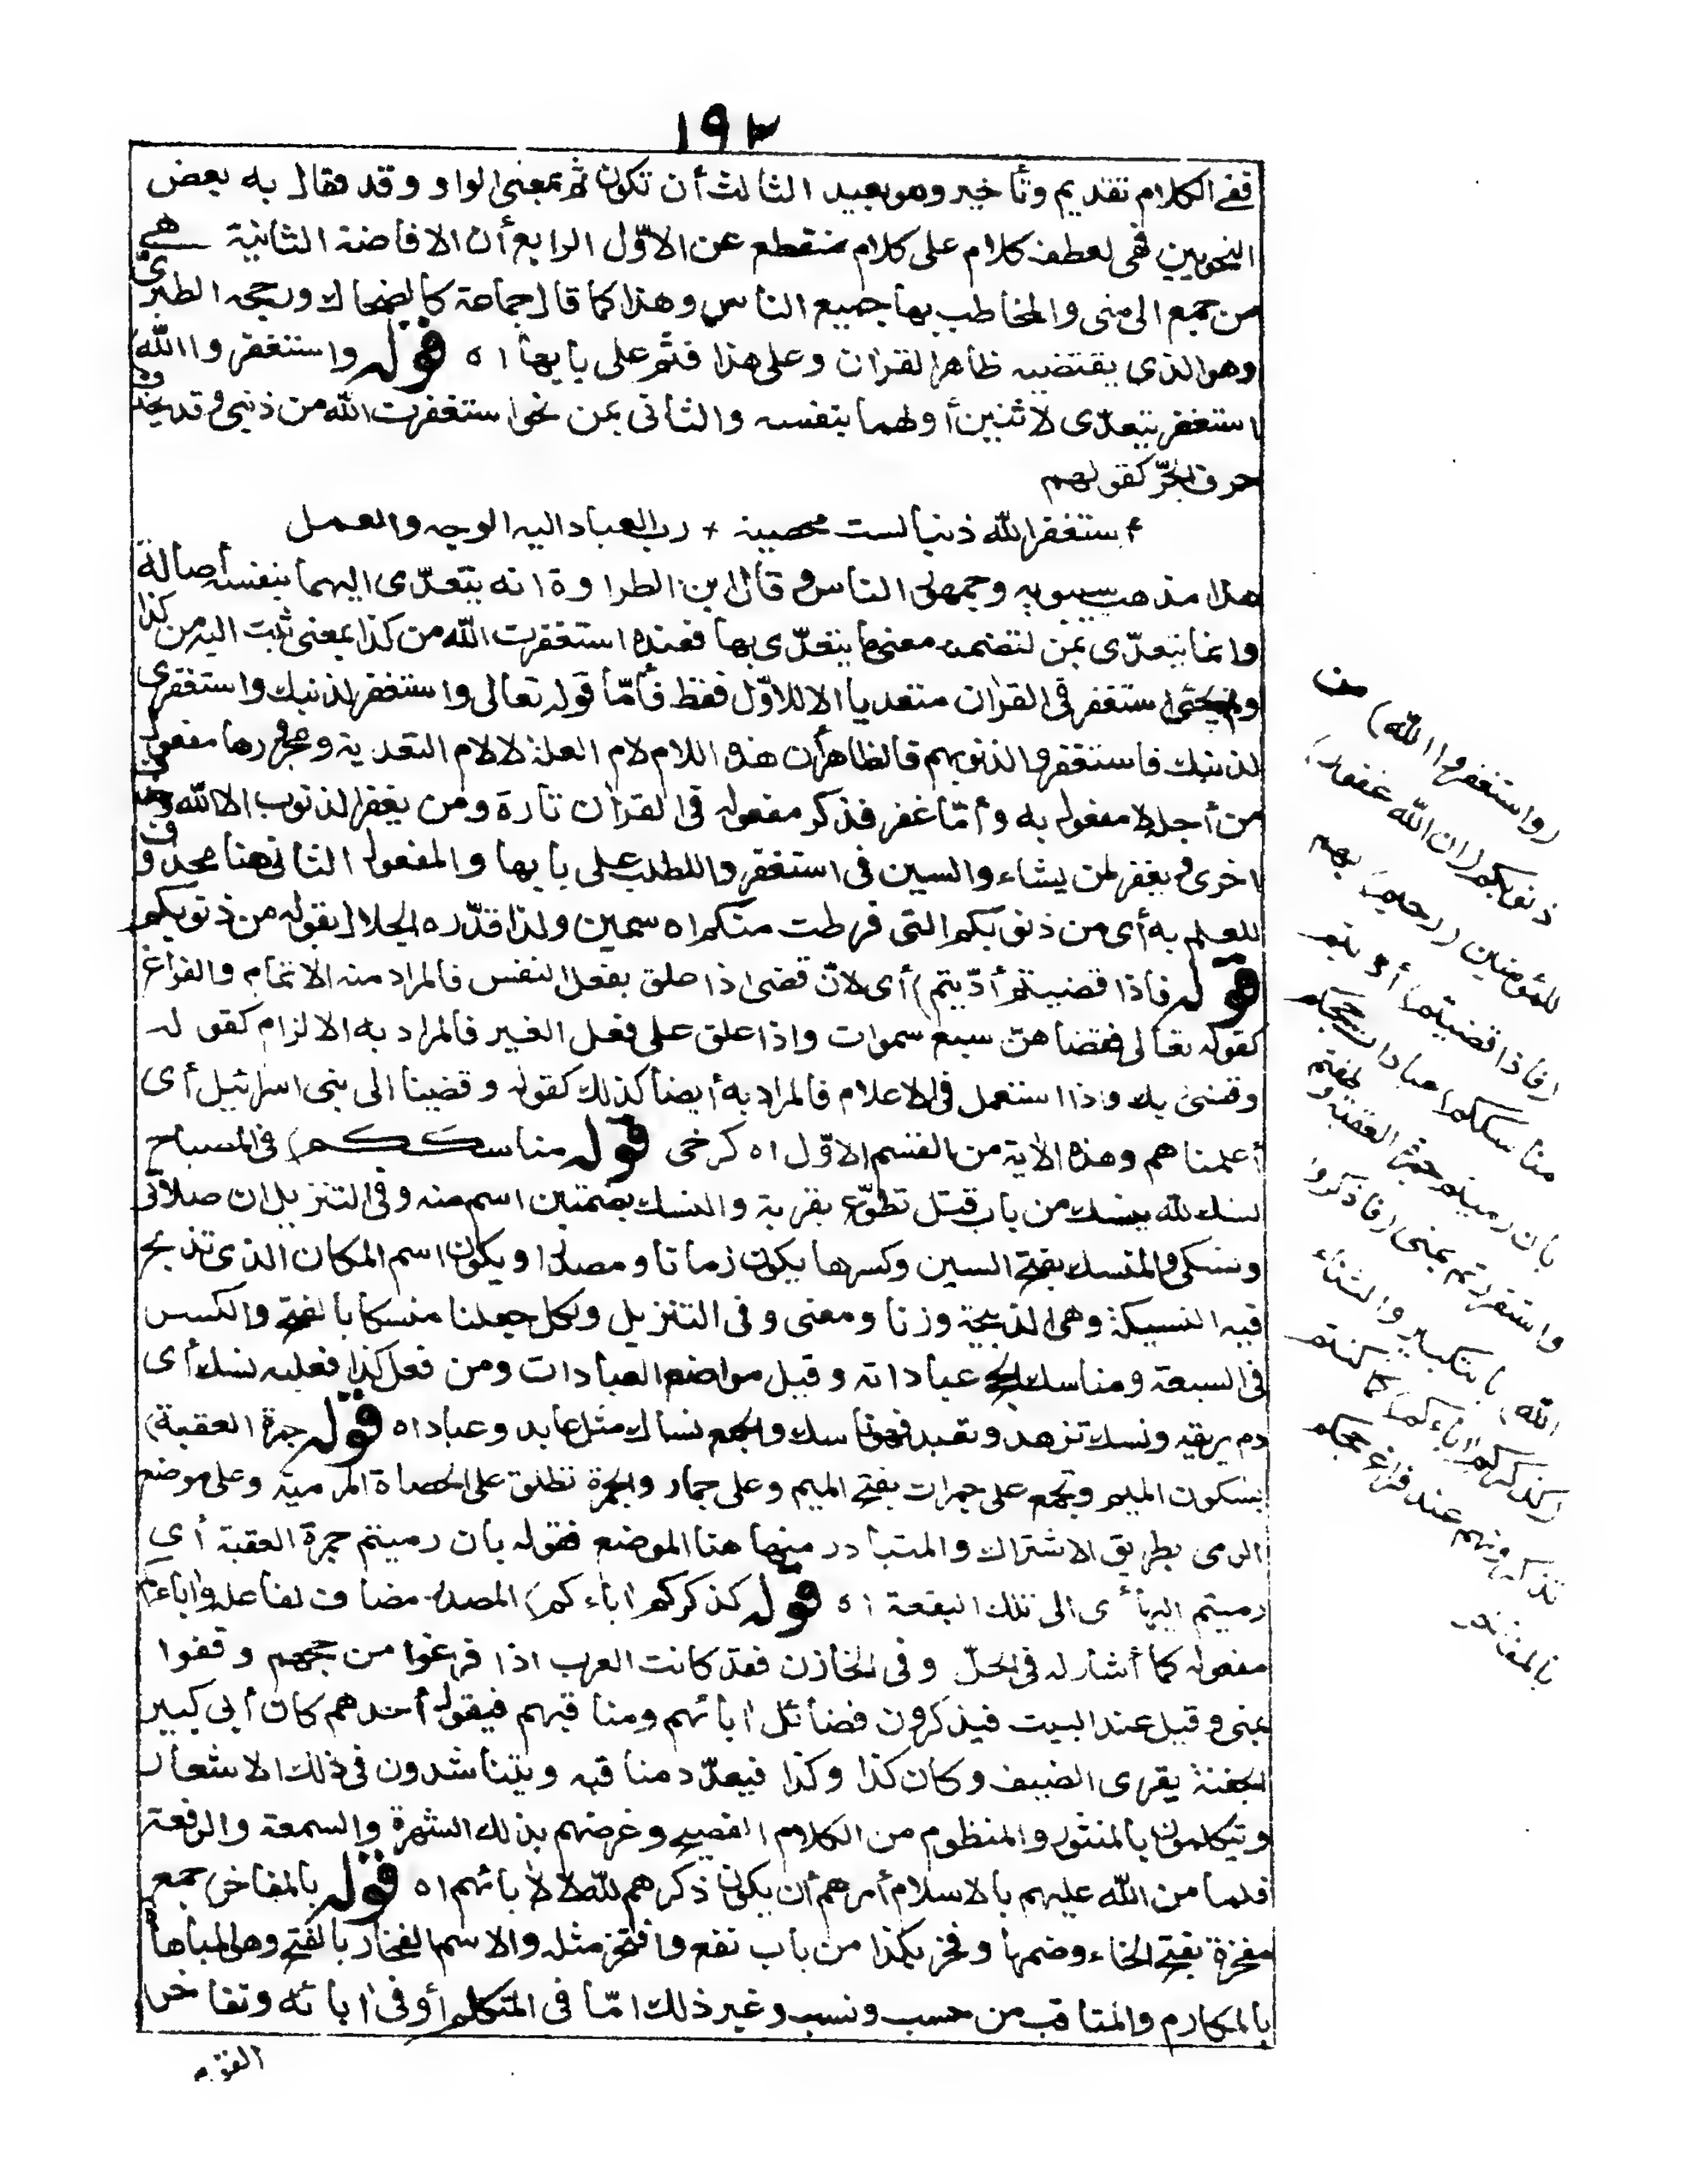 ١٩٢
ففي الكلام تقديم وتأخير وهو بعيد الثالث أن تكون ثم بمعنى الواو وقد قال به بعض
النحويين فهي لعطف كلام على كلام منقطع عن الاوّل الرابع أن الافاضة الثانية هي
من جمع الى منى والمخاطب بها جميع الناس وهذا كما قال جماعة كالضحاك ورجحه الطبري
وهو الذي يقتضيه ظاهر القرآن وعلى هذا فثم على بابها اه قوله واستغفروا الله)
استغفر يتعدّى لاثنين أولهما بنفسه والثاني بمن نحو استغفرت الله من ذنبي وقد يحذف
حرف الجرّ كقولهم
أستغفر الله ذنبا لست محصيه + رب العباد اليه الوجه والعمل
هذا مذهب سيبويه وجمهور الناس وقال ابن الطراوة انه يتعدّى اليهما بنفسه أصالة
وانما يتعدّى بمن لتضمنه معنى ما يتعدّى بها فعنده استغفرت الله من كذا بمعنى تبت اليه من كذا
ولم يجئ استغفر في القرآن متعديا الا للاوّل فقط فأمّا قوله تعالى واستغفر لذنبك واستغفري
لذنبك فاستغفروا لذنوبهم فالظاهر أن هذه اللام لام العلة لا لام التعدية ومجرورها مفعول
من أجله لا مفعول به وأمّا غفر فذكر مفعوله في القرآن تارة ومن يغفر الذنوب الا الله وحذف
اخرى ويغفر لمن يشاء والسين في استغفر واللطلب على بابها والمفعول الثاني هنا محذوف
للعلم به أي من ذنوبكم التي فرطت منكم اه سمين ولذا قدّره الجلال بقوله من ذنوبكم
قوله فاذا قضيتم أدّيتم) أي لانّ قضى اذا علق بفعل النفس فالمراد منه الاتمام والفراغ
كقوله تعالى فقضاهنّ سبع سموات واذا علق على فعل الغير فالمراد به الالزام كقوله
وقضى ربك واذا استعمل في الاعلام فالمراد به أيضا كذلك كقوله وقضينا الى بني اسرائيل أي
أعلمناهم وهذه الآية من القسم الاوّل اه كرخي قوله مناسككم) في المصباح
نسك لله ينسك من باب قتل تطوّع بقربة والنسك بضمتين اسم منه وفي التنزيل ان صلاتي
ونسكي والمنسك بفتح السين وكسرها يكون زمانا ومصدرا ويكون اسم المكان الذي تذبح
فيه النسيكة وهي الذبيحة وزنا ومعنى وفي التنزيل ولكل جعلنا منسكا بالفتح والكسر
في السبعة ومناسك الحج عباداته وقيل مواضع العبادات ومن فعل كذا فعليه نسك أي
دم يريقه ونسك تزهد وتعبد فهو ناسك والجمع نساك مثل عابد وعباد اه قوله جمرة العقبة)
بسكون الميم وتجمع على جمرات بفتح الميم وعلى جمار والجمرة تطلق على الحصاة المرمية وعلى موضع
الرمي بطريق الاشتراك والمتبادر منها هنا الموضع فقوله بان رميتم جمرة العقبة أي
رميتم اليها أي الى تلك البقعة اه قوله كذكركم آباءكم) المصدر مضاف لفاعله وآباءكم
مفعوله كما أشار له في الحلّ وفي الخازن فقد كانت العرب اذا فرغوا من حجهم وقفوا
بمنى وقيل عند البيت فيذكرون فضائل آبائهم ومناقبهم فيقول أحدهم كان أبي كبير
الجفنة يقري الضيف وكان كذا وكذا فيعدّد مناقبه ويتناشدون في ذلك الاشعار
ويتكلمون بالمنثور والمنظوم من الكلام الفصيح وغرضهم بذلك الشهرة والسمعة والرفعة
فلما من الله عليهم بالاسلام أمرهم أن يكون ذكرهم لله لا لآبائهم اه قوله بالمفاخر) جمع
مفخرة بفتح الخاء وضمها وفخر بكذا من باب نفع وافتخر مثله والاسم الفخار بالفتح وهي المباهاة
بالمكارم والمناقب من حسب ونسب وغير ذلك امّا في المتكلم أو في آبائه وتفاخر
القوم
(واستغفروا الله) من
ذنوبكم (ان الله غفور)
للمؤمنين (رحيم) بهم
(فاذا قضيتم) أديتم
(مناسككم) عبادات حجكم
بان رميتم جمرة العقبة وطفتم
واستقررتم بمنى (فاذكروا
الله) بالتكبير والثناء
(كذكركم آباءكم) كما كنتم
تذكرونهم عند فراغ حجكم
بالمفاخر